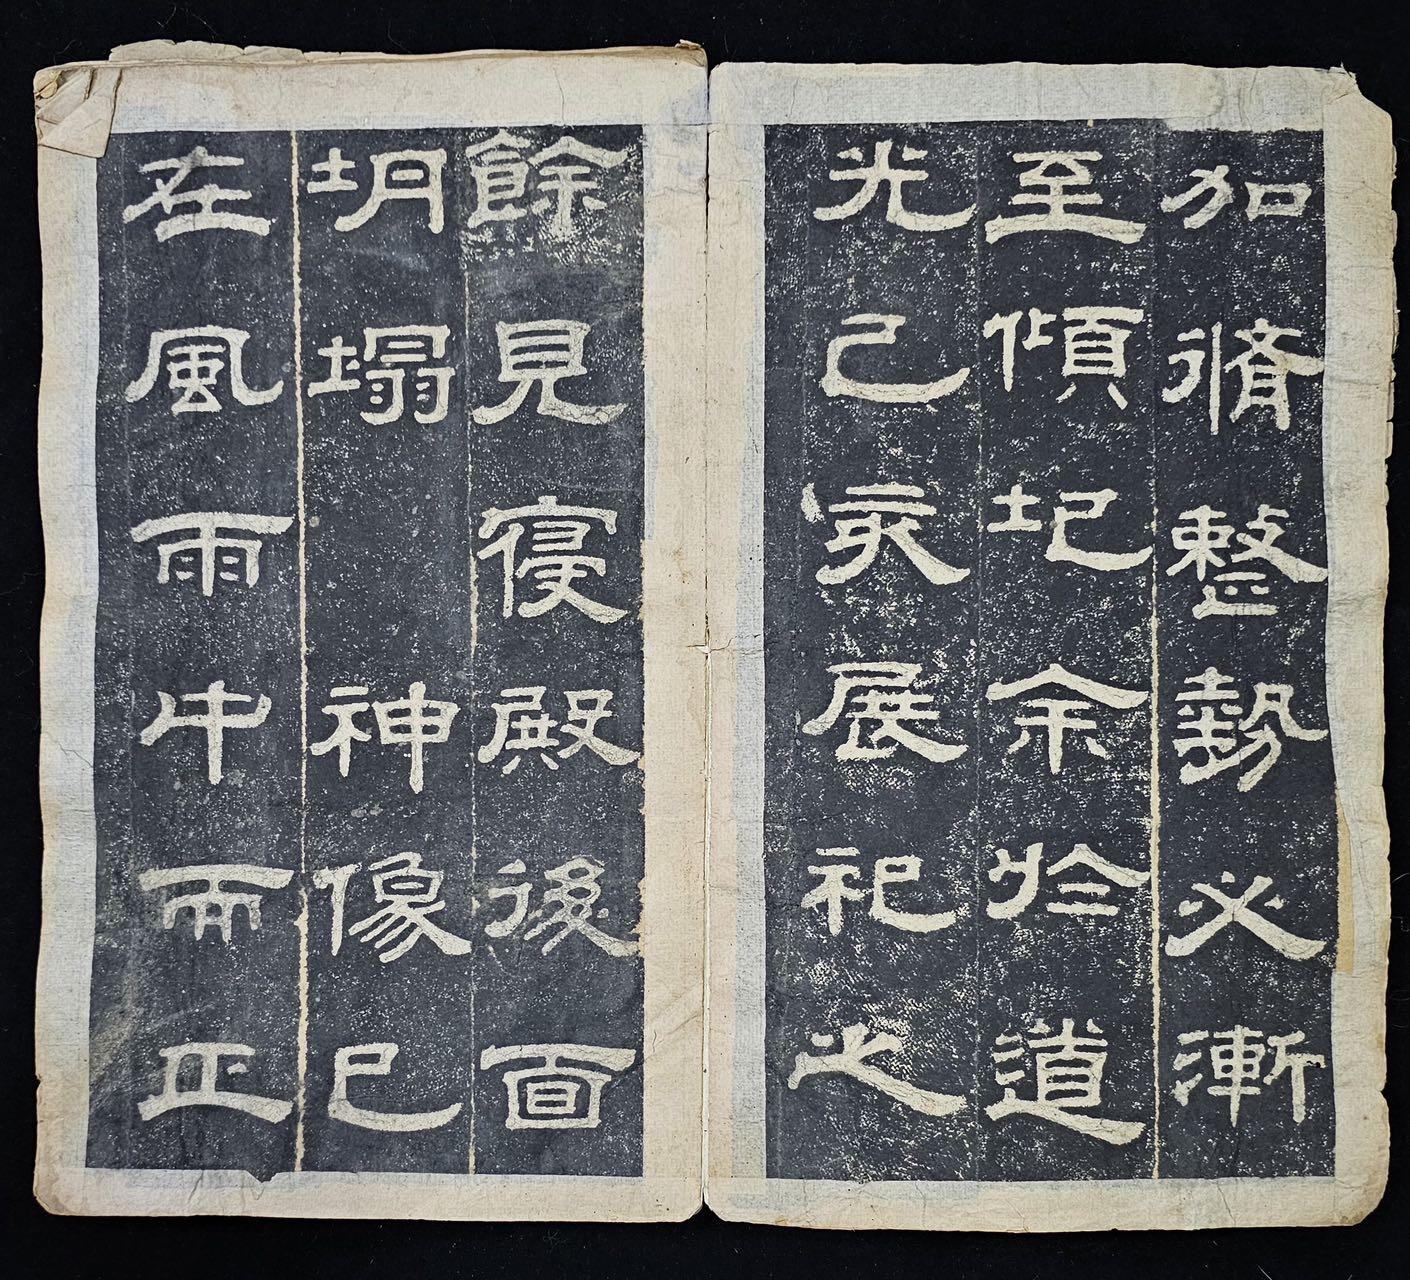 加脩整勢必漸
至傾圮余於道
光己亥展祀之
餘見寑殿後面
坍塌神像已
在風雨中而正